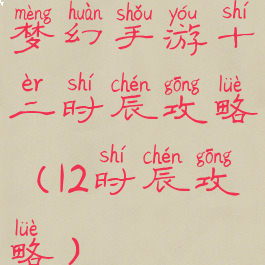 mèng huàn shǒu yóu shí
梦幻手游十
èr shí chén gōng lüè
二时辰攻略
shí chén gōng
（12时辰攻
lüè
略）